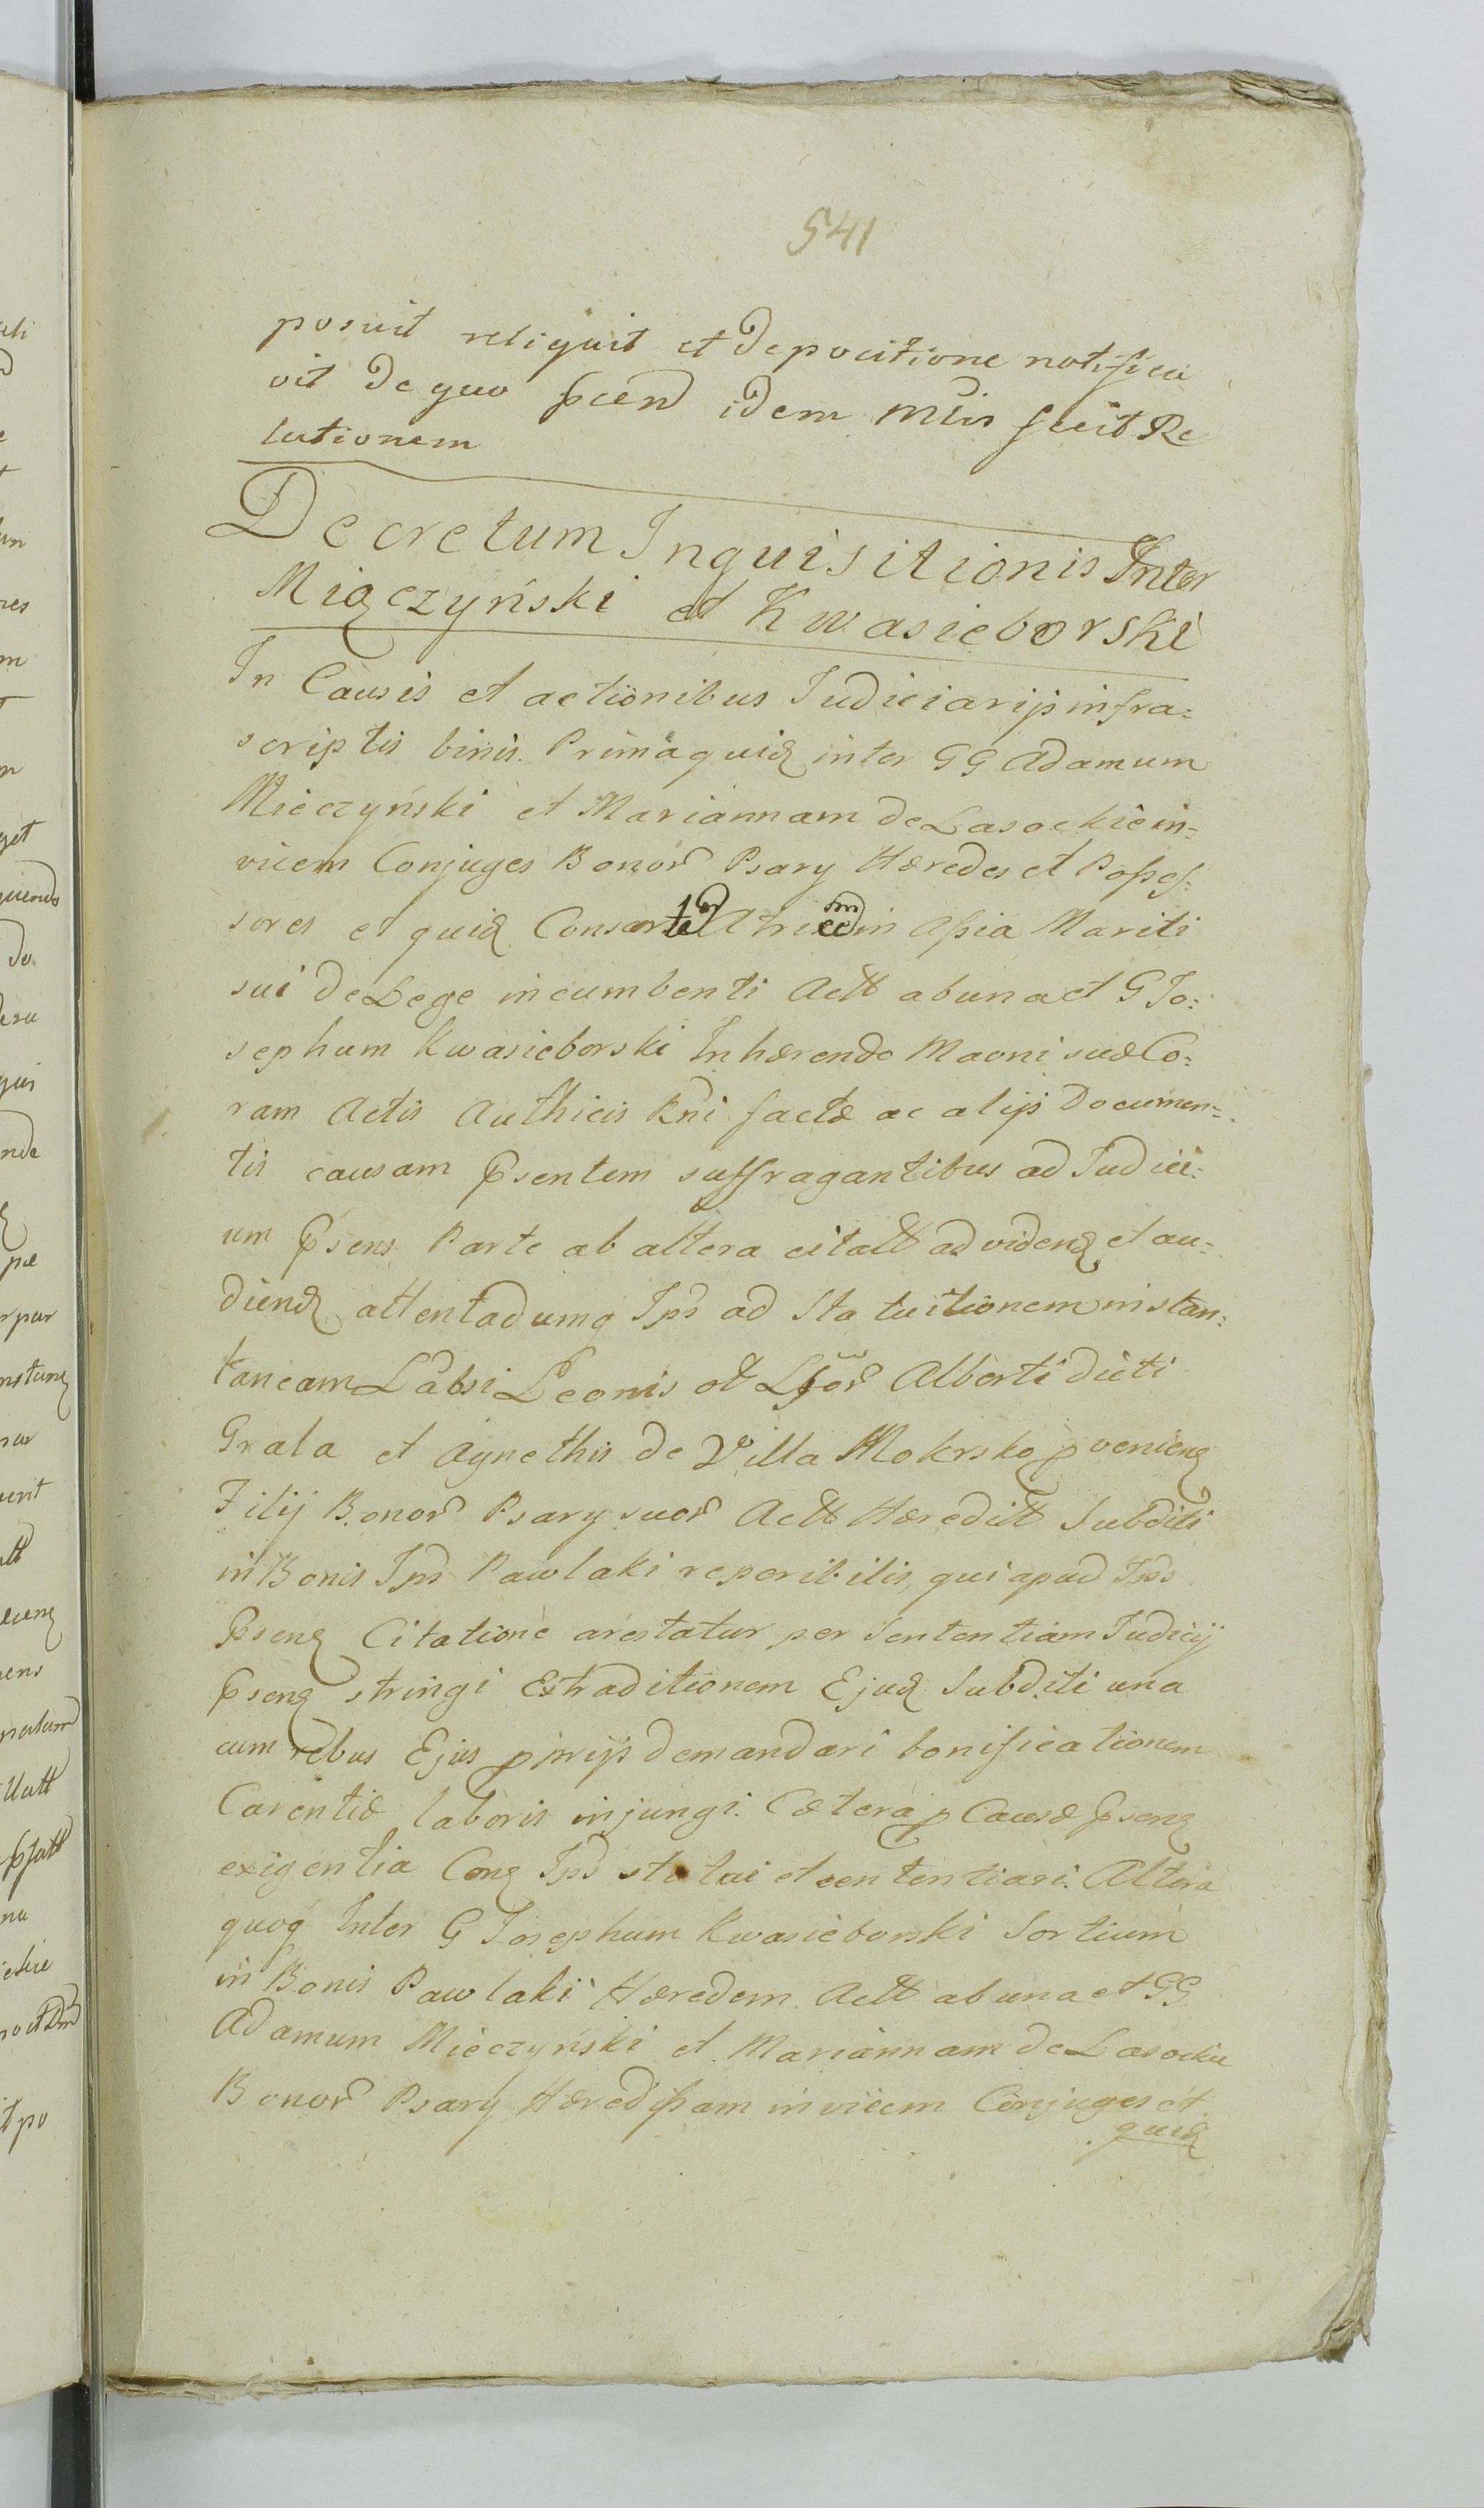 541
posuit reliquit et de pocitione notifica
vit de quo idem Mlis fecit Re
lationem
Decretum Inquisitionis Inter
Miączyński et Kwasieborski
In Causis et actionibus Judiciarijs infra=
scriptis binis. Prima quid inter GG Adamum
Mieczyński et Mariannam de Lasockie in=
vicem Conjuges Bonor Psary Hæredes et Posses=
sores et quid in Assia Mariti
sui de Lege incumbenti Actt ab una et G Jo=
sephum Kwasieborski Inhærendo Maoni suæ Co=
ram Actis Authicis Rni factæ ac alijs Documen=
tis causam Psentem suffragantibus ad Judici=
um Psens Parte ab altera citatt ad videnq et au=
dienq attentadumq Ips ad Statuitionem instan=
taneam Labsi Leonis ol Alberti dicti
Grala et Agnethis de Villa Mokrsko pvenienq
Filij Bonor Psary suor Actt Hæreditt Subditi
in Bonis Ips Pawlaki reperibilis, qui apud Ips
Psenq Citatione arestatur per Sententiam Judicij
Psenq stringi Extraditionem Ejusq Subditi una
cum rebus Ejus pprijs demandari bonificationem
Carentiæ laboris injungi. Cætera p Causæ Psenq
exigentia Conq Ips statui et sententiari. Altera
quoq Inter G Josephum Kwasieborski Sortium
in Bonis Pawlaki Hæredem Actt ab una et GG
Adamum Mieczyński et Mariannam de Lasockie
Bonor Psary Hæredissam invicem Conjuges et
quid